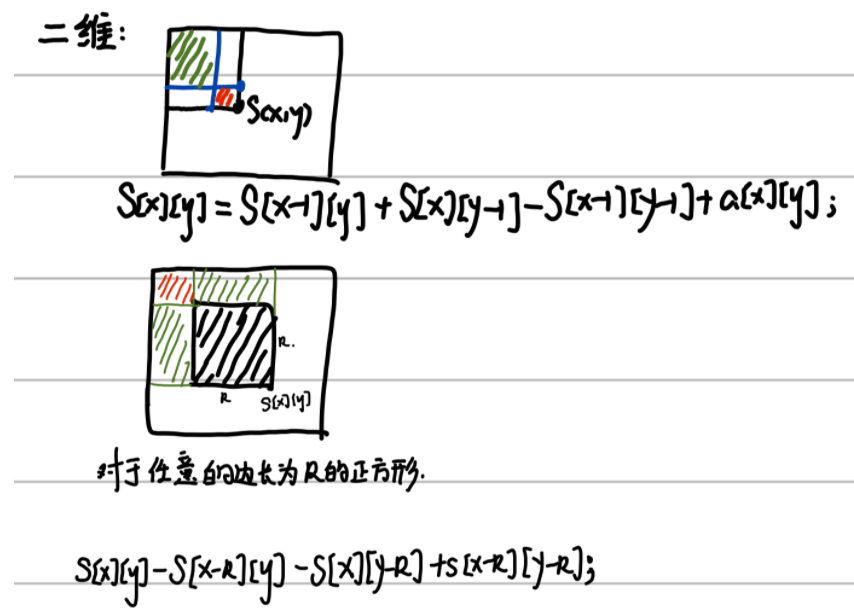 二维:
S(x,y)
S[x][y] = S[x-1][y] + S[x][y-1] - S[x-1][y-1] + a[x][y];
R.
R
S[x][y]
对于任意的边长为R的正方形.
S[x][y] - S[x-R][y] - S[x][y-R] + s[x-R][y-R];